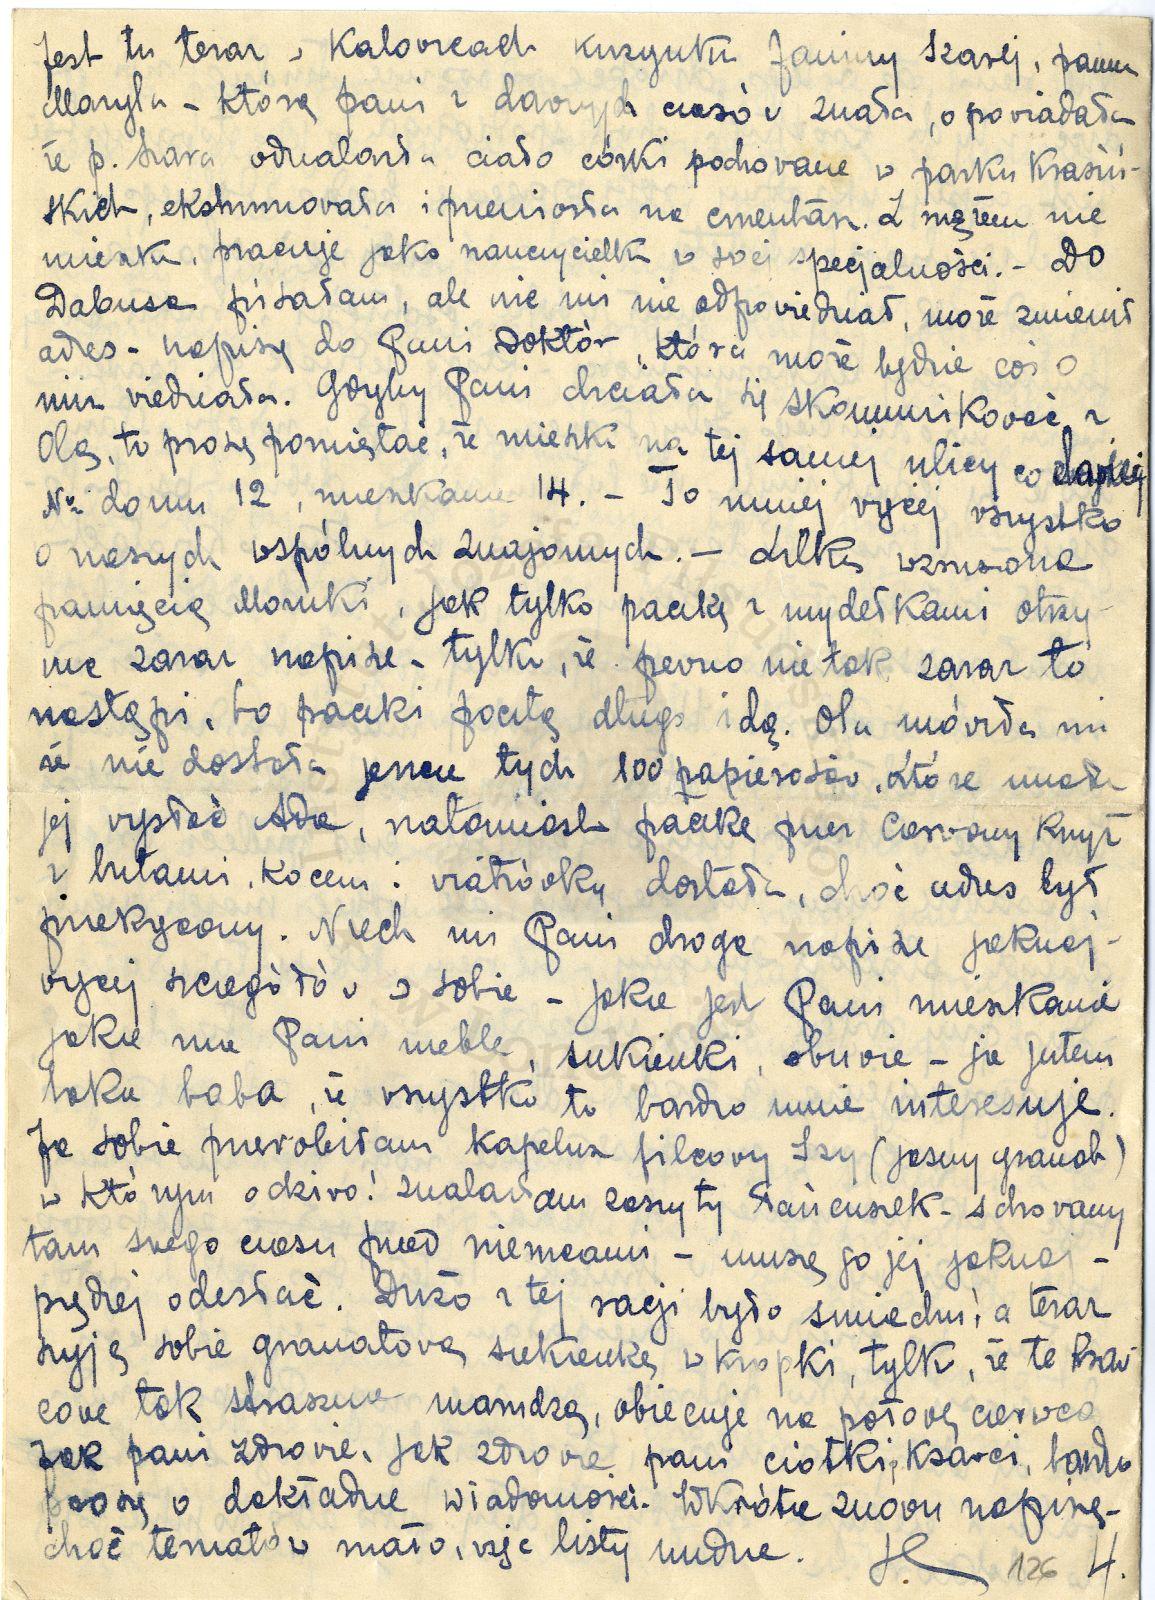 Jest tu teraz w Katowicach kuzynka Janiny Szarej, panna
Maryla – którą pani z dawnych czasów znała, opowiadała
że p. Szara odnalazła ciało córki pochowane w parku Krasiń-
skich, ekshumowała i przeniosła na cmentarz. Z mężem nie
mieszka, pracuje jako nauczycielka w swej specjalności. – Do
Dabusa pisałam, ale nic mi nie odpowiedział, może zmienił
adres – napiszę do Pani Doktór, która może będzie coś o
nim wiedziała. Gdyby Pani chciała się skomunikować z
Olą, to proszę pamiętać, że mieszka na tej samej ulicy co dawniej
Nr domu 12, mieszkanie 14. – To mniej więcej wszystko
o naszych wspólnych znajomych. – Lilka wzruszona
pamięcią Moniki, jak tylko paczkę z mydełkami otrzy-
ma zaraz napisze – tylko, że pewno nie tak zaraz to
nastąpi, bo paczki pocztą długo idą. Ola mówiła mi
że nie dostała jeszcze tych 100 papierosów, które miała
jej wysłać Ada, natomiast paczkę przez Czerwony Krzyż
z butami, kocem i wiatrówką dostała, choć adres był
przekręcony. Niech mi Pani droga napisze jaknaj-
więcej szczegółów o sobie – jakie jest Pani mieszkanie
jakie ma Pani meble, sukienki, obuwie – ja jestem
taka baba, że wszystko to bardzo mnie interesuje.
Ja sobie przerobiłam kapelusz filcowy Izy (jasny granat)
w którym o dziwo! znalazłam zaszyty łańcuszek – schowany
tam swego czasu przed niemcami – muszę go jej jaknaj-
prędzej odesłać. Dużo z tej racji było śmiechu, a teraz
szyję sobie granatową sukienkę w kropki, tylko, że te kraw-
cowe tak strasznie marudzą, obiecuje na połowę czerwca
Jak pani zdrowie, jak zdrowie pani ciotki, Ksawci, bardzo
proszę o dokładne wiadomości. Wkrótce znowu napiszę –
choć tematów mało, więc listy nudne. H.
126 4.